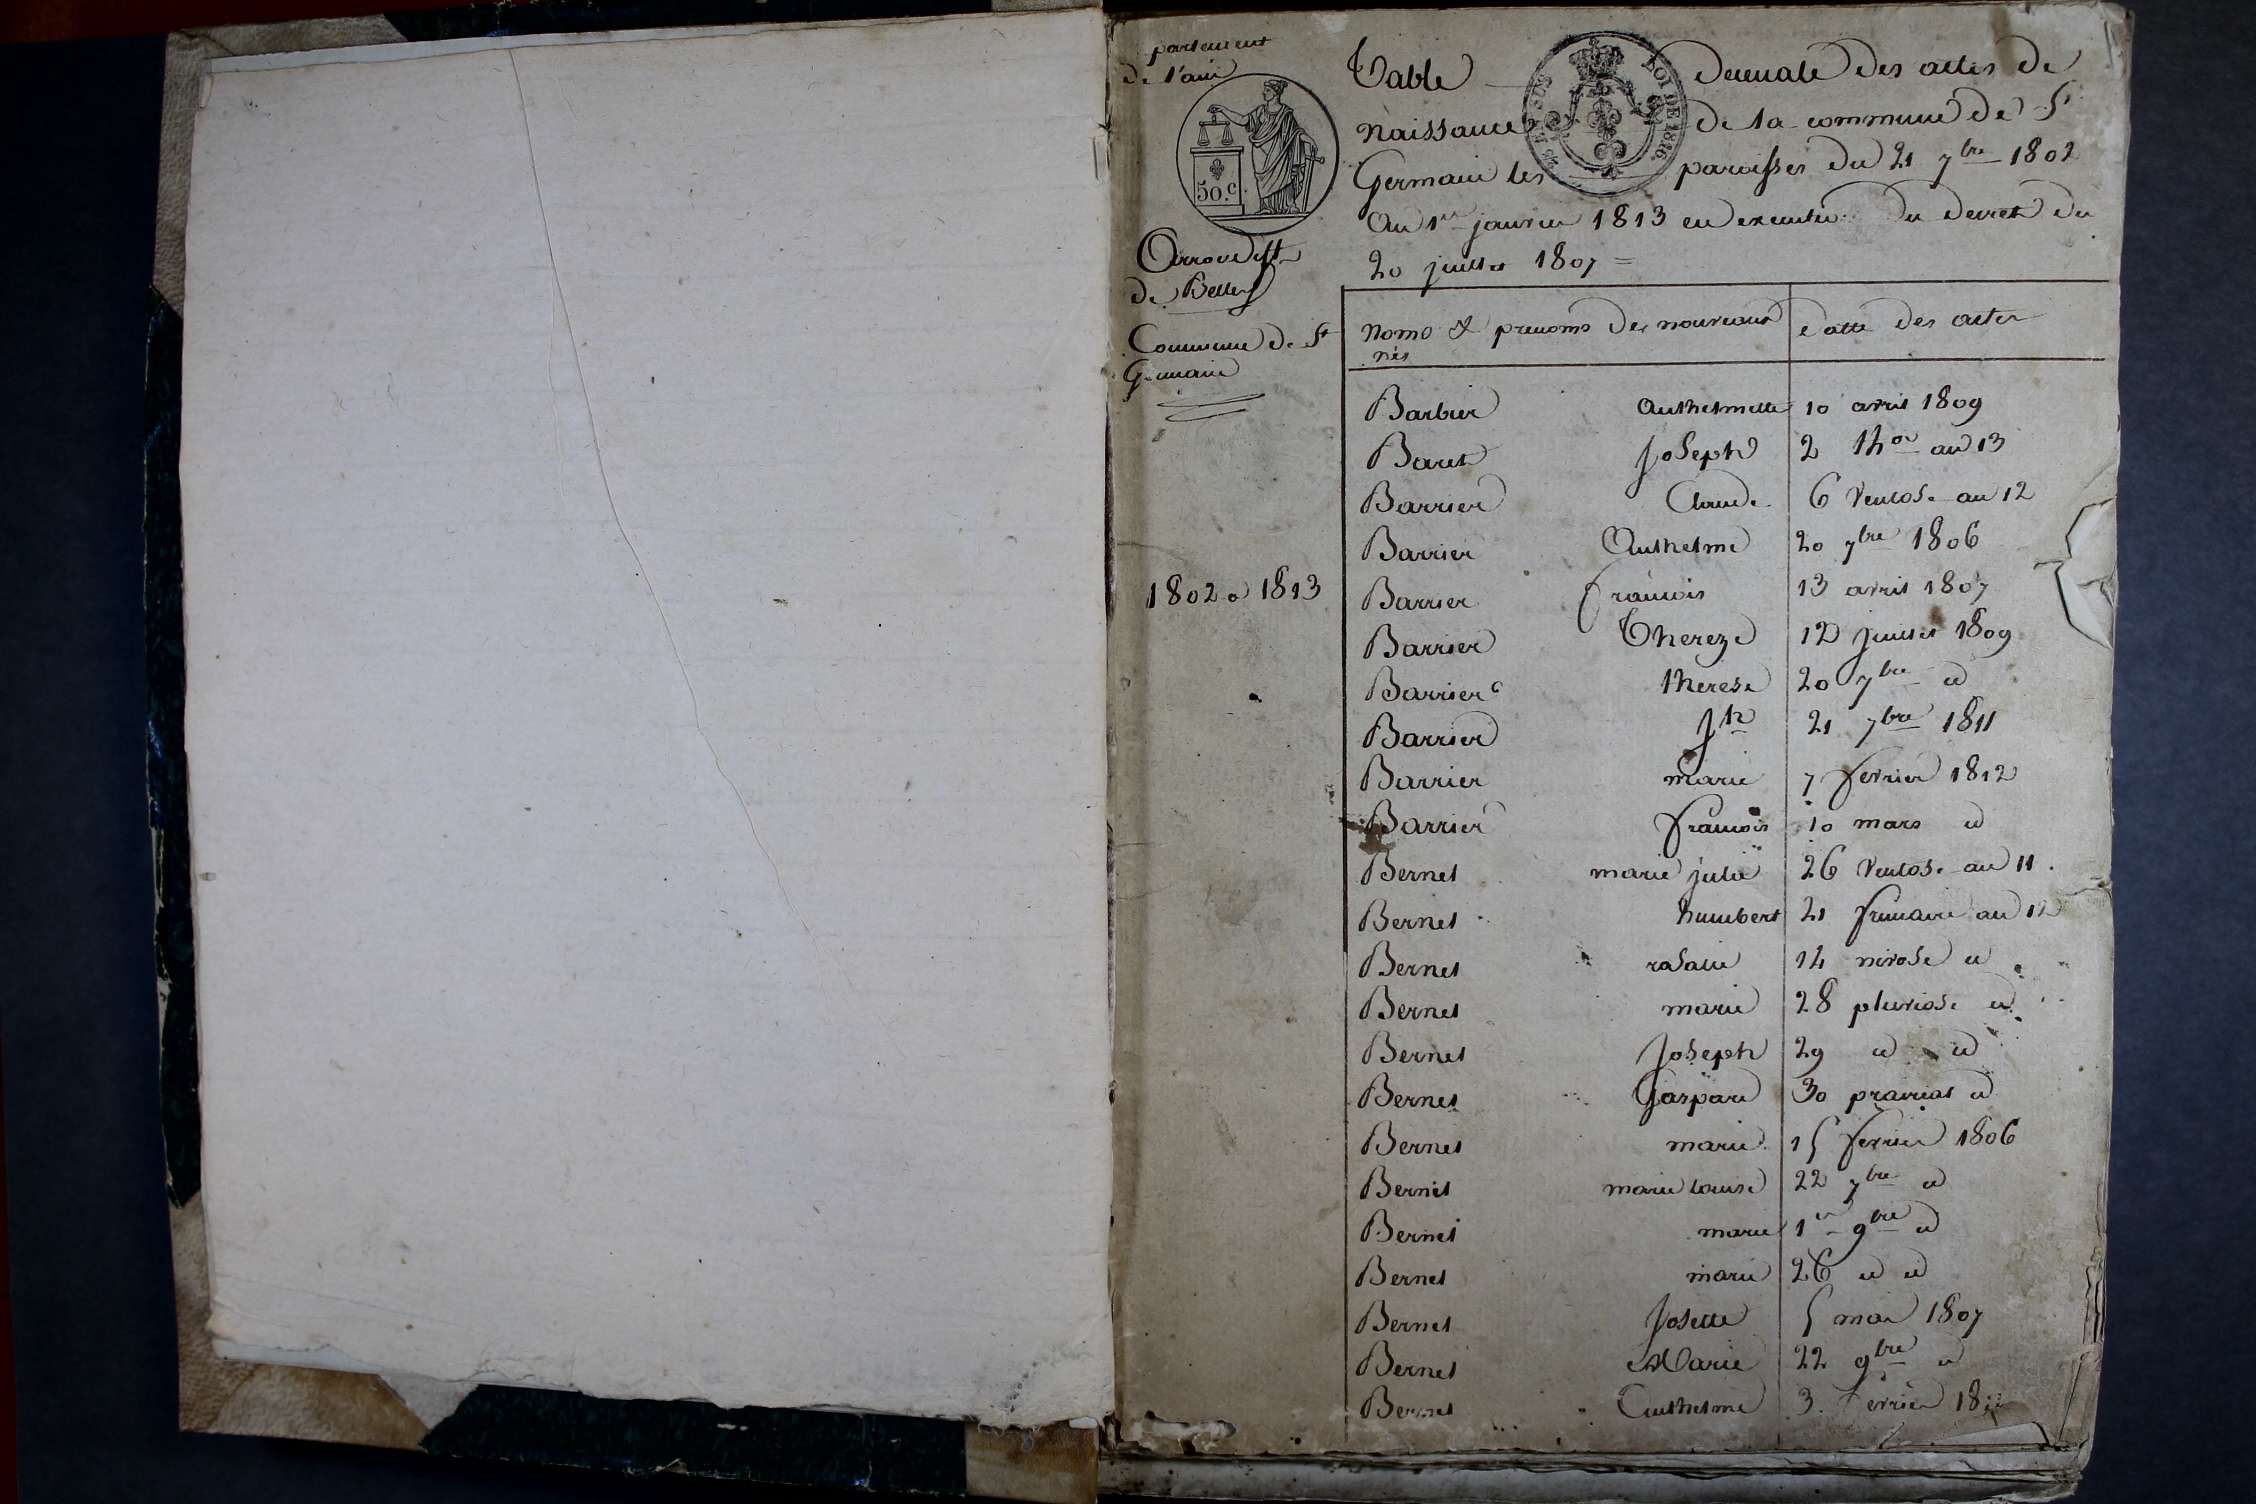 partement
de l'ain
50.c
Arrondisst
de Belley
Commune de St
Germain
1802 a 1813
Table decenale des actes de
naissance de la commune de St
Germain les paroisses du 21 7bre 1802
Au 1er janvier 1813 en execution du decret du
20 juillet 1807 =
LOI DE 1816.
noms & prenoms des nouveaux
nés
datte des actes
Barbier Anthelmette 10 avril 1809
Baret Joseph 2 an 13
Barrier Claude 6 Ventose an 12
Barrier Anthelme 20 7bre 1806
Barrier francois 13 avril 1807
Barrier Thereze 12 juillet 1809
Barrier therese 20 7bre id
Barrier Jh 21 7bre 1811
Barrier marie 7 fevrier 1812
Barrier francois 10 mars id
Bernet marie julie 26 Ventose an 11
Bernet humbert 21 frimaire an 12
Bernet rosalie 14 nivose id
Bernet marie 28 pluviose id
Bernet Joseph 29 id id
Bernet Gaspard 30 prairial id
Bernet marie 15 fevrier 1806
Bernet marie louise 22 7bre id
Bernet marie 1er 9bre id
Bernet marie 26 id id
Bernet Josette 5 mai 1807
Bernet Marie 22 9bre id
Bernet Anthelme 3 Fevrier